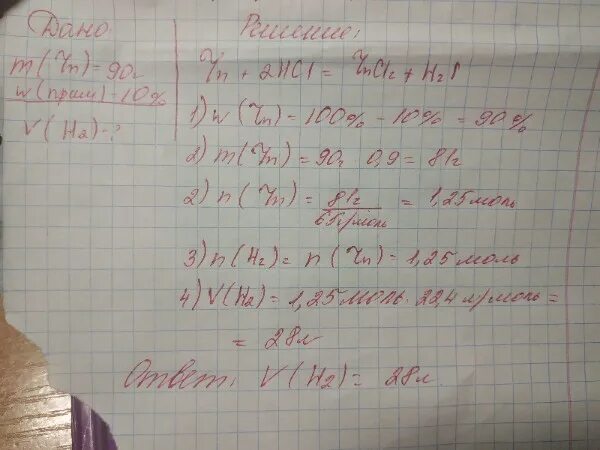 Дано
Решение:
m(Zn) = 90г
w(прим) = 10%
V(H2) - ?
Zn + 2HCl = ZnCl2 + H2↑
1) w(Zn) = 100% - 10% = 90%
2) m(Zn) = 90г · 0,9 = 81г
2) n(Zn) = 81г / 65г/моль = 1,25 моль
3) n(H2) = n(Zn) = 1,25 моль
4) V(H2) = 1,25 моль · 22,4 л/моль =
= 28л
Ответ: V(H2) = 28л